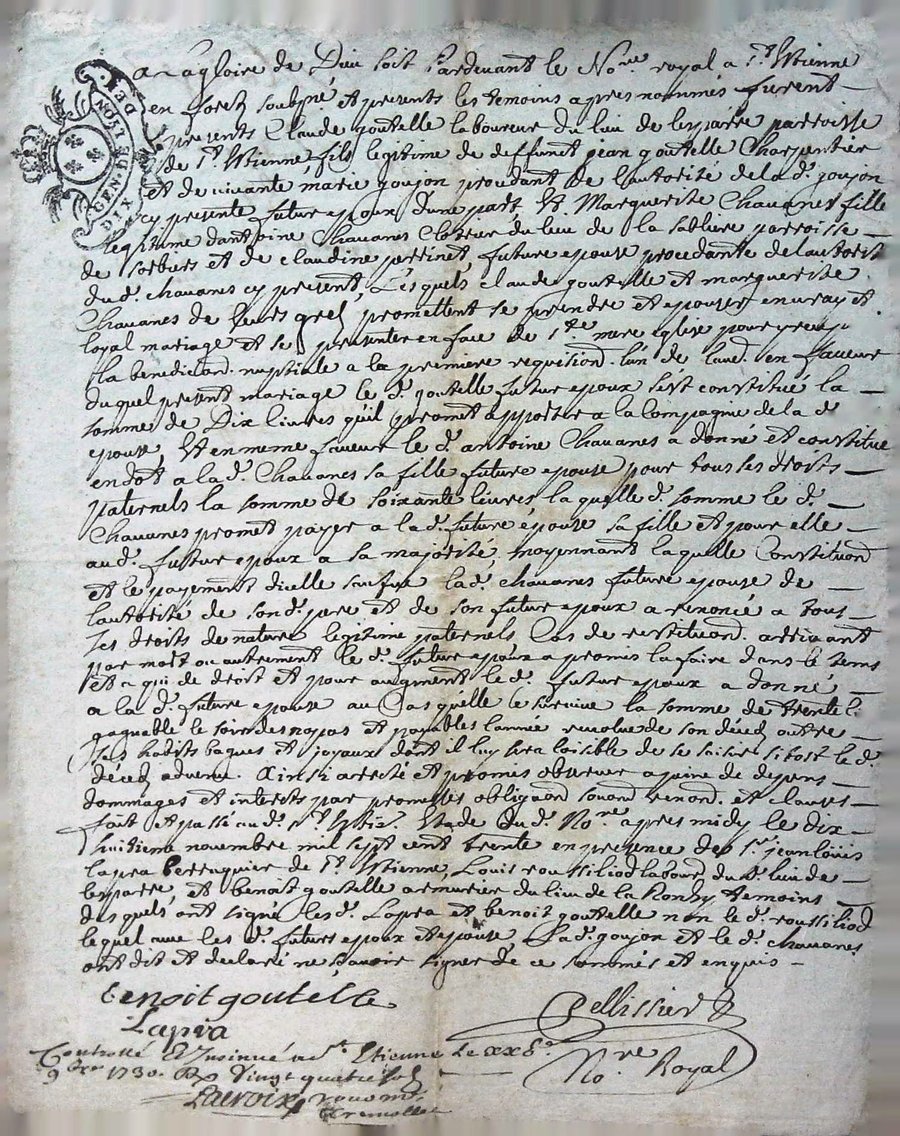 A la gloire de Dieu soit Pardevant le No.re royal a S.t Etienne
en forest soubsné et presents les temoins apres nommés furent
presents Claude goutelle laboureur du lieu de lesparre parroisse
de S.t Etienne, fils legitime de deffunct jean goutelle Charpentier
et de vivante marie goujon procedant de l'autorité de la d. goujon
cy presente future epoux d'une part, Et Marguerite Chauanes fille
legitime d'antoine Chauanes Cloteur du lieu de la sabliere parroisse
de sorbiers et de claudine perrinet, future epouse procedante de l'autorité
du d. chauanes cy present, Lesquels claude goutelle et marguerite
Chauanes de leurs grés promettent se prendre et epouser en vray et
loyal mariage et se presenter en face de S.te mere eglise pour
la benediction nuptiale a la premiere requision. l'un de l'aud. en faveur
duquel present mariage le d. goutelle future epoux s'est constitué la
somme de Dix livres qu'il promet apporter a la Compagne de la d.
epouse, Et en meme faveur le d. antoine Chauanes a donné et constitue
en dot a la d. Chauanes sa fille future epouse pour tous ses droits
paternels la somme de soixante livres, la quelle d. somme le d.
Chauanes promet payer a la d. future epouse sa fille et pour elle
au d. future epoux a sa majorité, moyennant laquelle Constituon
et le payement d'icelle la d. chauanes future epouse de
l'autorité de son d. pere et de son future epoux a renoncé a tous
ses droits de nature legitime paternels, Cas de restituaon. arrivant
par mort ou autrement le d. future epoux a promis la faire dans le tems
et a qui de droit et pour augment le d. future epoux a donné
a la d. future epouse au Cas qu'elle le survive la somme de trente l.
gagnable le soir des nopces et payables l'année revolue de son décéd outre
ses habits bagues et joyaux dont il luy sera loisible de se saisir sitost le d.
décéd advenu. Ainsi arreté et promis observer a peine de depens
dommages et interests par promesses obligaon soumd renond. et clauses
fait et passé au d. S.t Etie. Etude du d. No.re apres midy le dix
huitieme novembre mil sept cent trente en presence de S.r jean loüis
lapra Perruquier de S.t Etienne, Louis roussiliod labour. du d. lieu de
lesparre, et benoit goutelle armurier du lieu de la temoins
desquels ont signé les d. Lapra et benoit goutelle non le d. roussiliod
lequel avec les d. futurs epoux et epouse La d. goujon et le d. chauanes
ont dit et declaré ne scavoir signer de ce sommés et enquis
DIX DEN. GEN. DE LYON
benoit goutelle
Lapra
Pellissier
No.re Royal
Controllé Et Insinué a S.t Etienne le xx
9.bre 1730. Vingt quatre sol
Lacroix